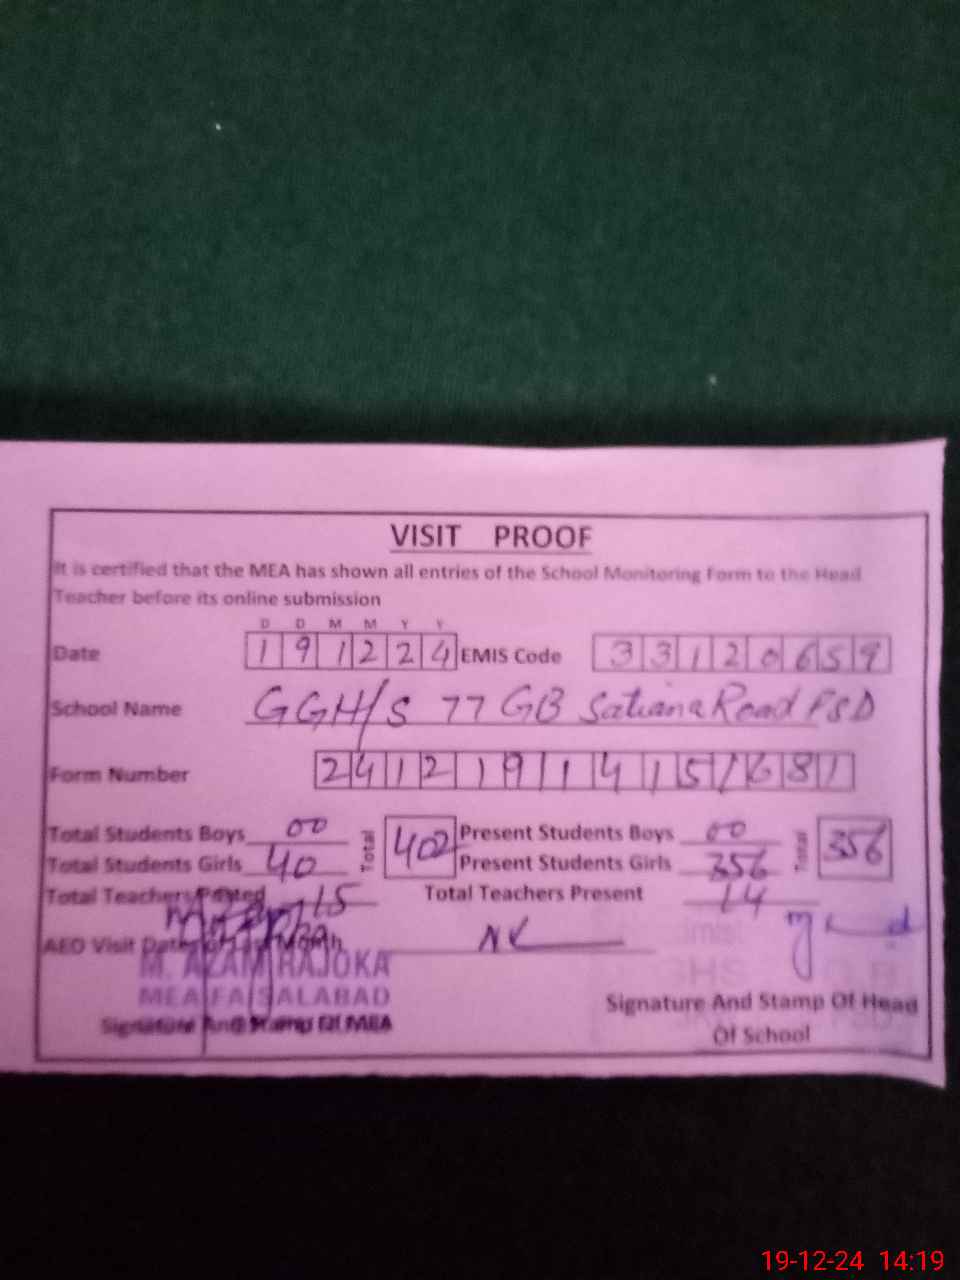 VISIT PROOF
It is certified that the MEA has shown all entries of the School Monitoring Form to the Head
Teacher before its online submission
D D M M Y Y
Date 191224 EMIS Code 33120659
School Name GGH/S 77 GB Satiana Road FSD
Form Number 241219141515/681
Total Students Boys 00 Total 402 Present Students Boys 00 Total 356
Total Students Girls 40 Present Students Girls 356
Total Teachers Posted 15 Total Teachers Present 14
AEO Visit Date of Last Month
M. AZAM RAJOKA
MEA FAISALABAD
Signature And Stamp Of MEA
Signature And Stamp Of Head
Of School
19-12-24 14:19